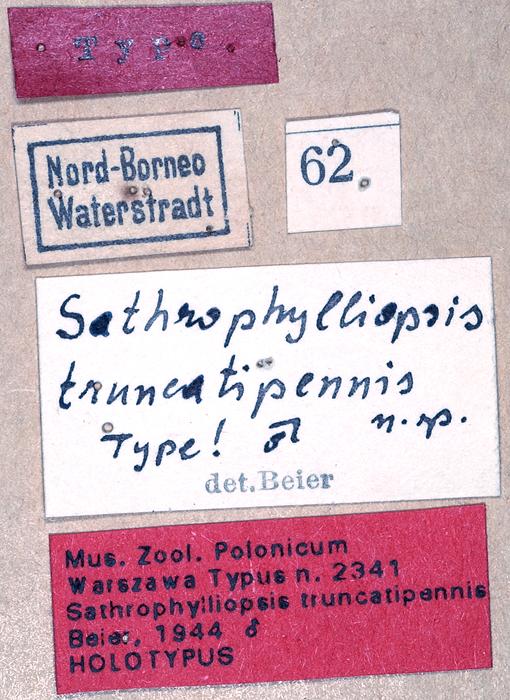 Type.
Nord-Borneo
Waterstradt
62.
Sathrophylliopsis
truncatipennis
Type! ♂ n.sp.
det.Beier
Mus. Zool. Polonicum
Warszawa Typus n. 2341
Sathrophylliopsis truncatipennis
Beier, 1944 ♂
HOLOTYPUS